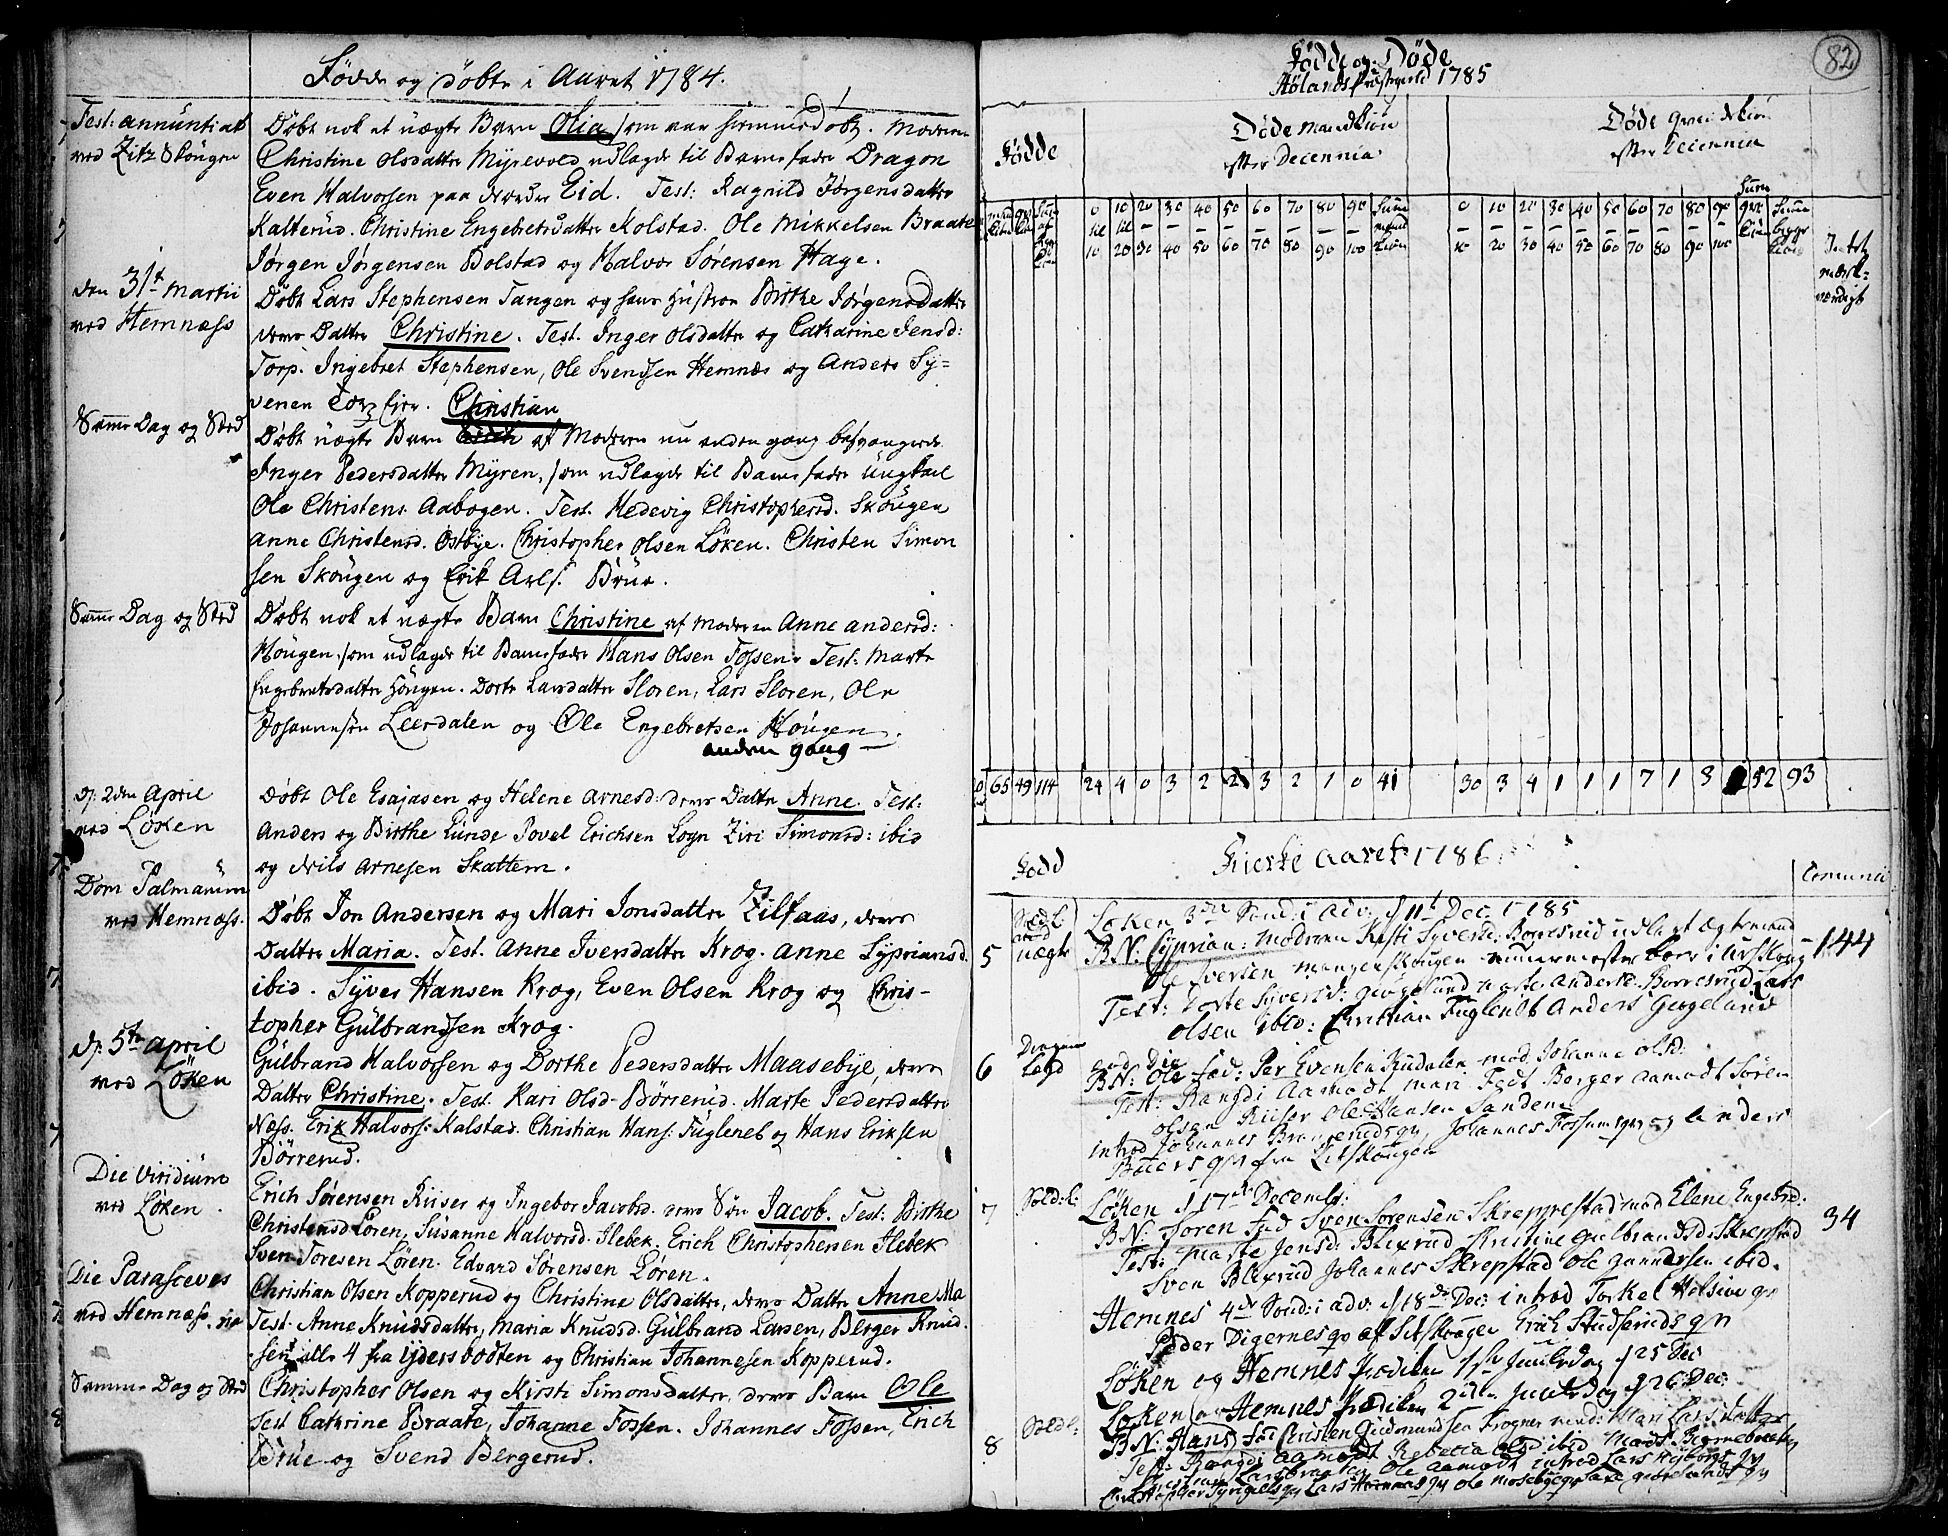 Fødde og døbte i Aaret 1784.
Fest: annunciat
ved Zitz Skougen
Døbt nok et uægte Barn Olia som var hiemmedøbt. Moderen
Christine Olsdatter Myrevold udlagde til Barnefader Dragon
Even Halvorsen paa Nordre Eid. Test: Ragnild Jørgensdatter
Kalterud. Christine Engebretsdatter Kolstad. Ole Mikkelsen Braate
Jørgen Jørgensen Bolstad og Halvor Sørensen Hage.
den 31t Martii
ved Hemness
Døbt Lars Stephensen Tangen og hans Hustroe Birthe Jørgensdatter
deres Datter Christine. Test. Inger Olsdatter og Catharine Jensd:
Torp. Ingebret Stephensen, Ole Svendsen Hemnæs og Anders Sy=
venen Torp Eier. Christian
Samme Dag og Sted
Døbt uægte Barn af Moderen nu anden gang besvangrede
Inger Pedersdatter Myren, som udlagde til Barnefader Ungkarl
Ole Christens. Aabogen. Test. Hedevig Christophersd. Skougen
Anne Christensd. Østbye. Christopher Olsen Løken. Christen Simon
sen Skougen og Erik Arls. Brue.
Samme Dag og Sted
Døbt nok et uægte Barn Christine af Moderen Anne Andersd:
Hougen, som udlagde til Barnefader Hans Olsen Fossen. Test: Marte
Ingebretsdatter Hougen. Dorte Larsdatter Sloren, Lars Sloren, Ole
Johannesen Leerdalen og Ole Engebretsen Hougen.
anden gang
d: 2den April
ved Løken
Døbt Ole Esajasen og Helene Arnesd: deres Datter Anne. Test:
Anders og Birthe Lunde Povel Erichsen Logn Ziri Simonsd: ibid
og Nils Arnesen Skattem.
Dom Palmarum
ved Hemness.
Døbt Jon Andersen og Mari Jonsdatter Zilfaas, deres
Datter Maria. Test. Anne Iversdatter Krog. Anne Syprians d.
ibid. Syver Hansen Krog, Even Olsen Krog og Chris-
topher Gulbrandsen Krog.
d: 5te April
ved Løken
Gulbrand Halvorsen og Dorthe Pedersdatter Maasebye, deres
Datter Christine. Test. Kari Olsd. Børrerud. Marte Pedersdatter
Næss. Erik Halvors: Kalstad. Christian Hans: Fugleneb og Hans Eriksen
Børrerud.
Die Viridium
ved Løken.
Erich Sørensen Kiiser og Ingebor Jacobsd. deres Søn Jacob. Test: Birthe
Christensd Løren, Susanne Halvorsd. Ilebek. Erich Christophersen Ilebek
Sven Toresen Løren. Edvard Sørensen Løren.
Die Parasceves
ved Hemness.
Christian Olsen Kopperud og Christine Olsdatter, deres Datter Anne Ma
ria
Test. Anne Knudsdatter, Maria Knudsd. Gulbrand Larsen, Berger Knud
sen alle 4 fra Ydersbodten og Christian Johannesen Kopperud.
Samme Dag og Sted
Christopher Olsen og Kirsti Simonsdatter, deres Barn Ole
Test Cathrine Braate, Johanne Fossen. Johannes Fossen, Erich
Brue og Svend Bergerud.
82
Fødde og Døde
Hølands Præstegield 1785
Fødde
Døde Mandkiøn
efter Decennia
Døde Qvindekiøn
efter Decennia
0 10 20 30 40 50 60 70 80 90 Summ
til til – – – – – – – –
10 20 30 40 50 60 70 80 90 100
0 10 20 30 40 50 60 70 80 90
10 20 30 40 50 60 70 80 90 100
Intet
mærk-
værdigt
65 49 114 24 4 0 3 2 2 3 2 1 0 41 30 3 4 1 1 1 7 1 3 52 93
Fødd
Kierke Aaret 1786
Communi
Løken 3die Sønd: i Adv: d 11t Dec: 1785
5 uægte
B.N: Cyprian: Moderen Kirsti Syversd: Borresrud udlagt Ægtemand
Ole Iversen Mangenskougen 144
Test: Dorte Syversd: Marte Andersd: Borresrud Lars
Olsen ibid: Christian Fugleneb Anders Geogeland
6 Dragon
Legd
B.N: Ole fad: Per Evensen Rudalen med Johanne Olsd:
Test: Rangdi Aamodt Mari Berger Aamodt Søren
Olsen Kiiser Ole Hansen Sanden
introd Johannes Johannes Fossum og Anders
fra Zitskougen
7 Sold:l:
Løken d 17de Decembr:
B.N: Søren fad Sven Sørensen Skreppestad mod Elene Engebrd: 34
Test: Marte Jensd: Blixrud Kristine Gulbrandsd: Skrepstad
Sven Blixrud Johannes Skrepstad Ole Gundersen ibid.
Hemnes 4de Sønd: i adv: d 18de Dec: introd Torkel
Peder Digernes qv af Sitskougen Erich
Løken og Hemnes Prædiken 1ste Juuledag d 25 Dec
Løken Hemnes Prædiken 2den Juuledag d 26 Dec:
8 Sold l:
B.N: Hans fad Christen Gudmundsen Krogner mod: Mari Larsdatter
Test: Rangdi Aamodt Rebecca Olsd ibid Mads
Ole Aamodt introd Lars
Lars Hemnes qv Ole Mosebye qv